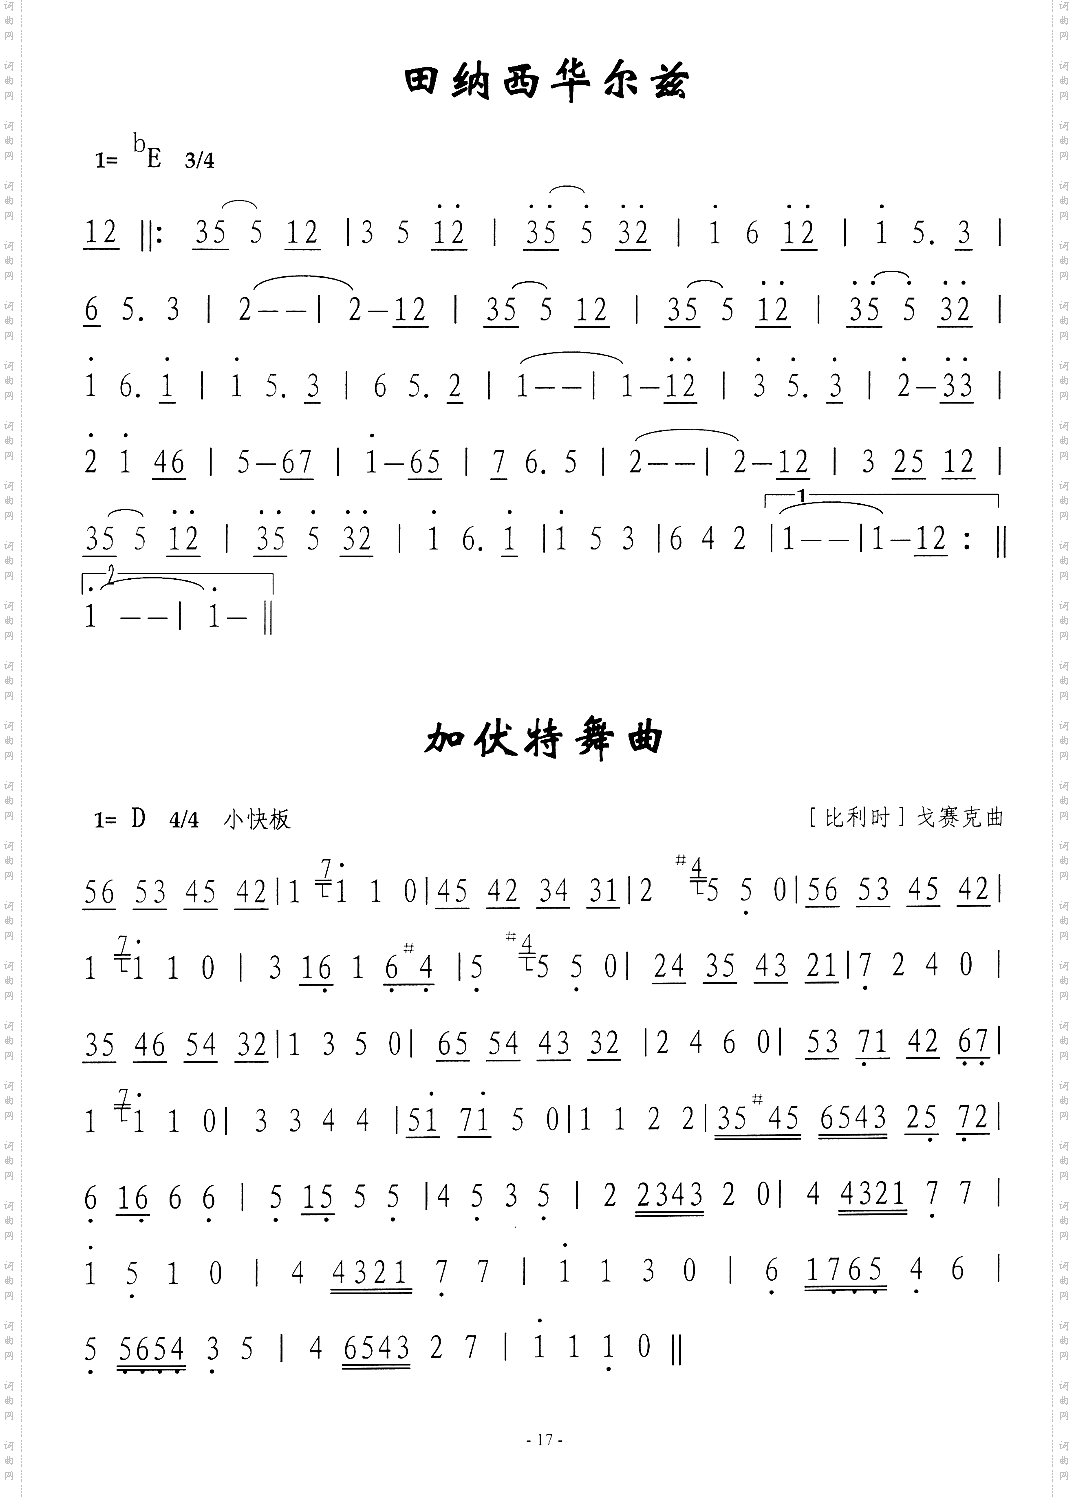 田纳西华尔兹
1= bE 3/4
12 ‖: 35 5 12 | 3 5 12 | 35 5 32 | 1 6 12 | 1 5. 3 |
6 5. 3 | 2--| 2-12 | 35 5 12 | 35 5 12 | 35 5 32 |
1 6. 1 | 1 5. 3 | 6 5. 2 | 1--| 1-12 | 3 5. 3 | 2-33 |
2 1 46 | 5-67 | 1-65 | 7 6. 5 | 2--| 2-12 | 3 25 12 |
1
35 5 12 | 35 5 32 | 1 6. 1 |1 5 3 |6 4 2 |1--|1-12 : ‖
2
1 --| 1- ‖
加伏特舞曲
1= D 4/4 小快板 [比利时]戈赛克曲
56 53 45 42|1 7 1 1 0|45 42 34 31|2 #4 5 5 0|56 53 45 42|
1 7 1 1 0 | 3 16 1 6#4 |5 #4 5 5 0| 24 35 43 21|7 2 4 0 |
35 46 54 32|1 3 5 0| 65 54 43 32 |2 4 6 0| 53 71 42 67|
1 7 1 1 0| 3 3 4 4 |51 71 5 0|1 1 2 2|35#45 6543 25 72|
6 16 6 6 | 5 15 5 5 |4 5 3 5 | 2 2343 2 0| 4 4321 7 7 |
1 5 1 0 | 4 4321 7 7 | 1 1 3 0 | 6 1765 4 6 |
5 5654 3 5 | 4 6543 2 7 | 1 1 1 0 ‖
- 17 -
词曲网